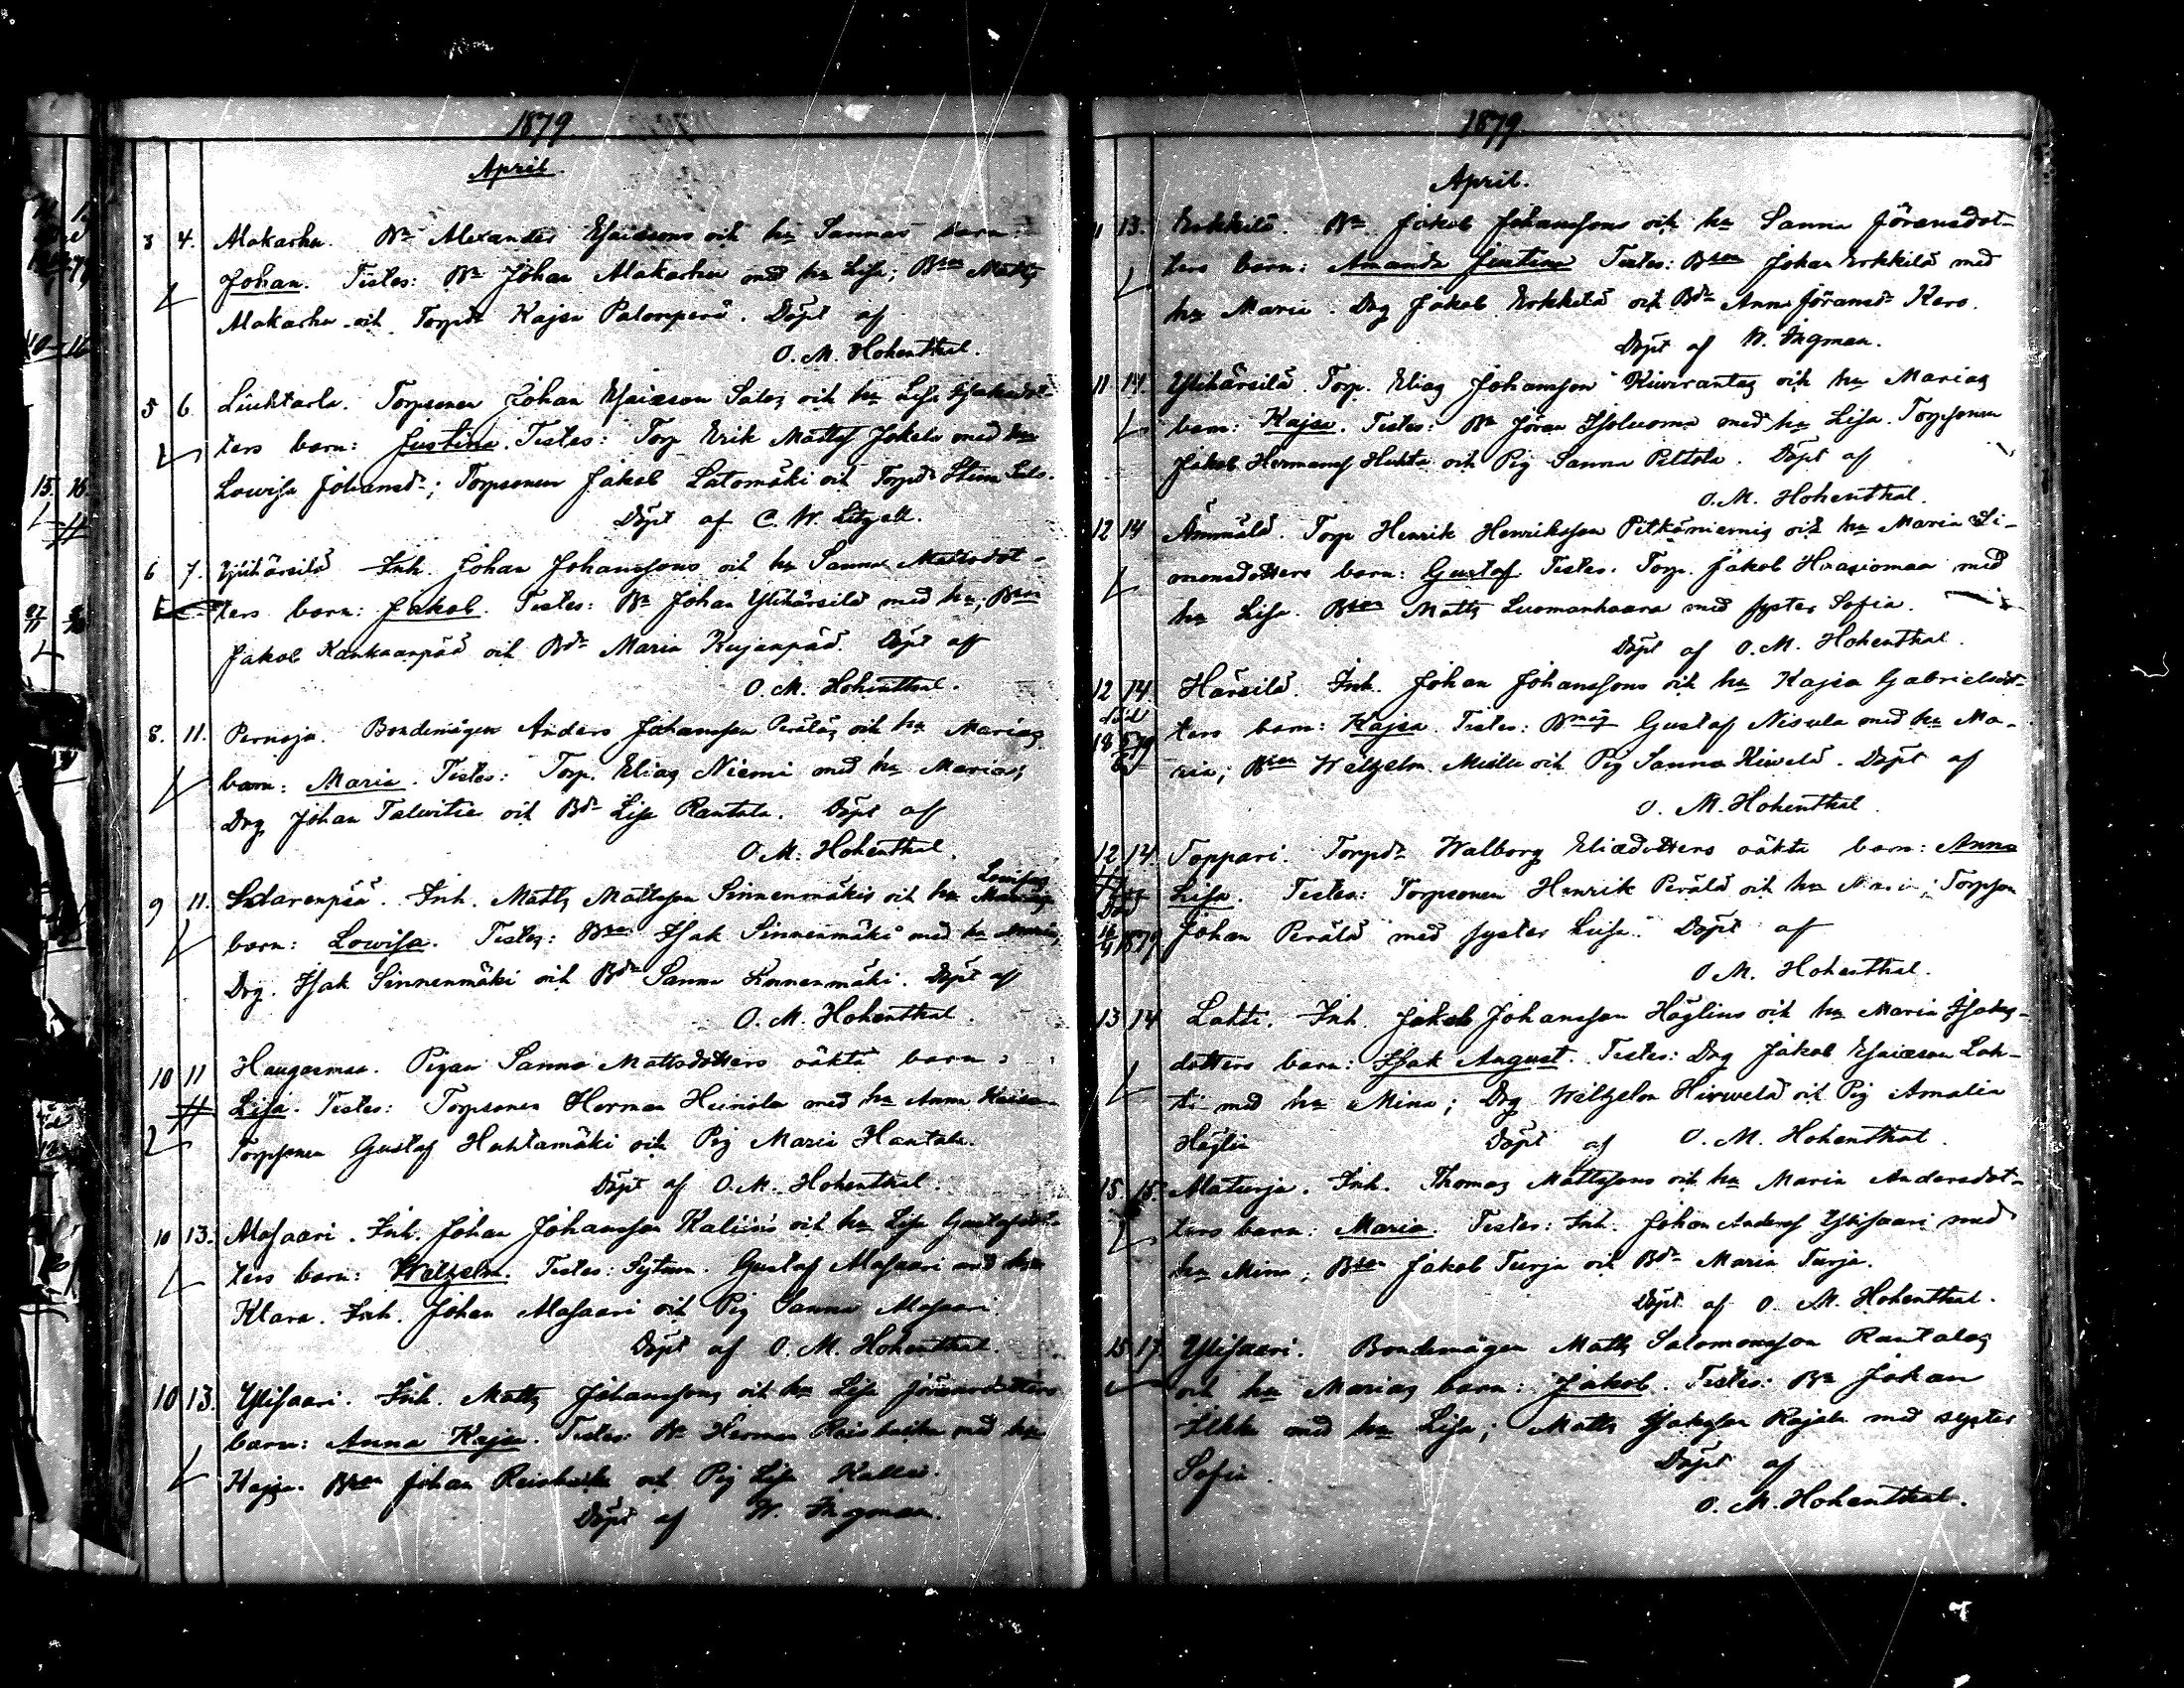 1879
April.
3 4. Alakarhu. Bn Alexander Esaiæsons och hu Sannas barn:
Johan. Testes: Bn Johan Alakarhu med hu Lisa; Bson Matts
Alakarhu och Torpdr Kajsa Palonperä. Döpt af
O. M. Hohenthal.
5 6. Luhtarla. Torpsonen Johan Esaiæson Salos och hu Lisa Isaksdot-
ters barn: Justina. Testes: Torp Erik Mattss Jokela med hu
Lowisa Johansdr; Torpsonen Jakob Latomäki och Torpdr Stina Salo.
Döpt af C. W. Litzell.
6 7. Inh. Johan Johanssons och hu Sanna Mattsdot-
ters barn: Jakob. Testes: Bn Johan Ylihärsilä med hu; Bson
Jakob Kankaanpää och Bdr Maria Kujanpää. Döpt af
O. M. Hohenthal.
8. 11. Pernaja. Bondemågen Anders Johansson Peräläs och hu Marias
barn: Maria. Testes: Torp. Elias Niemi med hu Maria;
Drg Johan Talvitie och Bdr Lisa Rantala. Döpt af
O. M. Hohenthal.
9 11. Inh. Matts Mattsson Sinnenmäkis och hu Lowisas
barn: Lowisa. Testes: Bson Isak Sinnenmäki med hu Maria;
Drg. Isak Sinnenmäki och Bdr Sanna Sinnenmäki. Döpt af
O. M. Hohenthal.
10 11 Haugasmaa. Pigan Sanna Mattsdotters oäkta barn:
Lisa. Testes: Torpsonen Herman Heinola med hu Anna
Torpsonen Gustaf Huhtamäki och Pig Maria Hantala.
Döpt af O. M. Hohenthal.
10 13. Alasaari. Inh. Johan Johansson och hu Lisa Gustafsdot-
ters barn: Wilhelm. Testes: Sytnm. Gustaf Alasaari med hu
Klara. Inh. Johan Alasaari och Pig Sanna Alasaari.
Döpt af O. M. Hohenthal.
10 13. Ylisaari. Inh. Matts Johanssons och hu Lisa
barn: Anna Kajsa. Testes: Bn Herman med hu
Kajsa. Bson Johan och Pig Lisa
Döpt af W. Ingman.
1879.
April.
11 13. Erkkilä. Bn Jakob Johanssons och hu Sanna Göransdot-
ters barn: Amanda Justina Testes: Bson Johan Erkkilä med
hu Maria. Drg Jakob Erkkilä och Bdr Anna Göransdr Kero.
Döpt af W. Ingman.
11 14. Ylihärsilä. Torp. Elias Johansson Kiwirantas och hu Marias
barn: Kajsa. Testes: Bn Göran Isoluoma med hu Lisa. Torpsonen
Jakob Hermanss Huhta och Pig Sanna Peltola. Döpt af
O. M. Hohenthal.
12 14 Ämmälä. Torp Henrik Henriksson Pitkäniemis och hu Maria Si-
monsdotters barn: Gustaf. Testes. Torp. Jakob med
hu Lisa. Bson Matts Luomanhaara med syster Sofia.
Döpt af O. M. Hohenthal.
12 14 Härsilä. Inh. Johan Johanssons och hu Kajsa Gabrielsdot-
död
ters barn: Kajsa. Testes: Bmåg Gustaf Nisula med hu Ma-
ria; Bson Wilhelm och Pig Sanna Döpt af
O. M. Hohenthal.
12 14. Toppari. Torpdr Walborg Eliædotters oäkta barn: Anna
Lisa. Testes: Torpsonen Henrik Perälä och hu Maria; Torpson
död
1879 Johan Perälä med syster Luisa. Döpt af
O. M. Hohenthal.
13 14 Lahti. Inh. Jakob Johansson Häglins och hu Maria Isaks-
dotters barn: Isak August. Testes: Drg Jakob Esaiæson Lah-
ti med hu Mina; Drg Wilhelm Hirwelä och Pig Amalia
Häglin Döpt af O. M. Hohenthal.
15. 15. Alaturja. Inh. Thomas Mattssons och hu Maria Andersdot-
ters barn: Maria. Testes: Inh. Johan Anderss Ylisaari med
hu Mina; Bson Jakob Turja och Bdr Maria Turja.
Döpt af O. M. Hohenthal.
15 17. Ylisaari. Bondemågen Matts Salomonsson Rantalas
och hu Marias barn: Jakob. Testes: Bn Johan
Ilkka med hu Lisa; Matts Isaksson Rajala med syster
Sofia. Döpt af
O. M. Hohenthal.